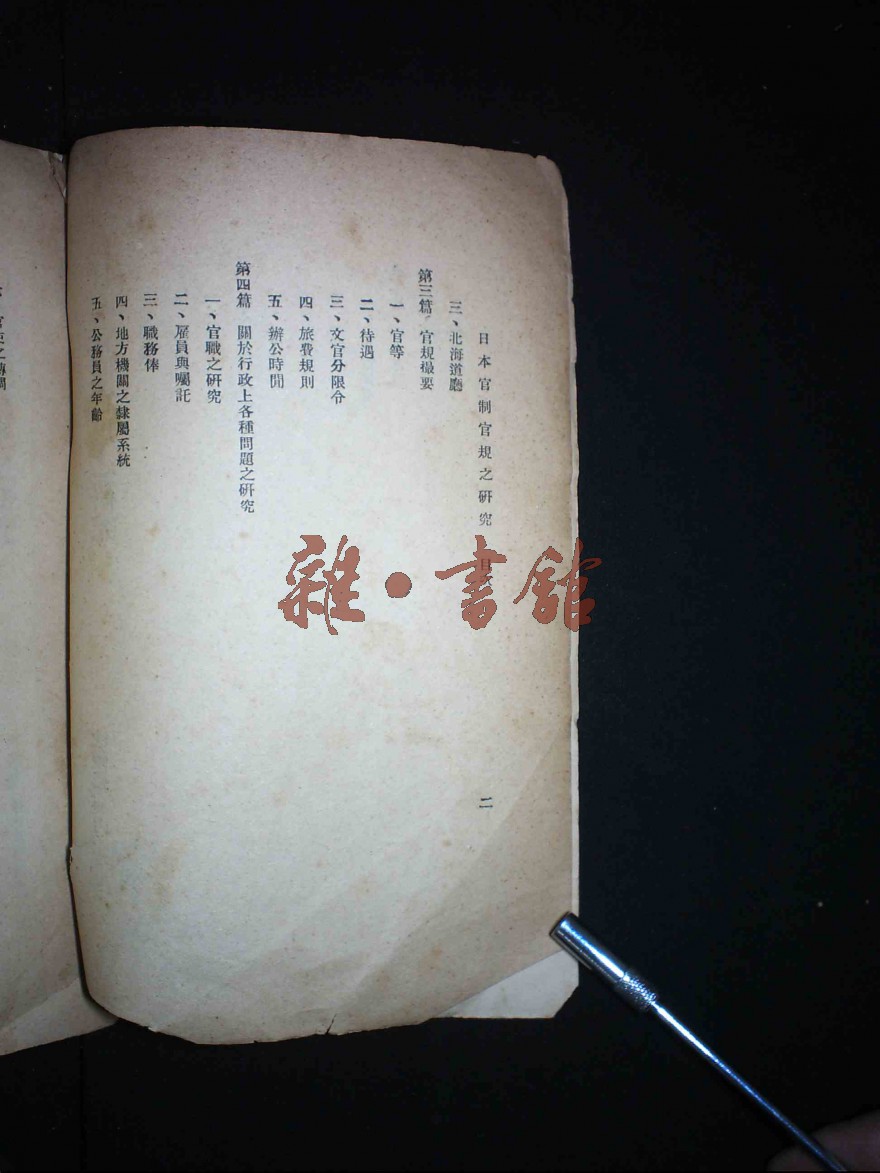 日本官制官規之研究 目
二
三、北海道廳
第三篇 官規撮要
一、官等
二、待遇
三、文官分限令
四、旅費規則
五、辦公時間
第四篇 關於行政上各種問題之研究
一、官職之研究
二、雇員與囑託
三、職務俸
四、地方機關之隸屬系統
五、公務員之年齡
雜·書館